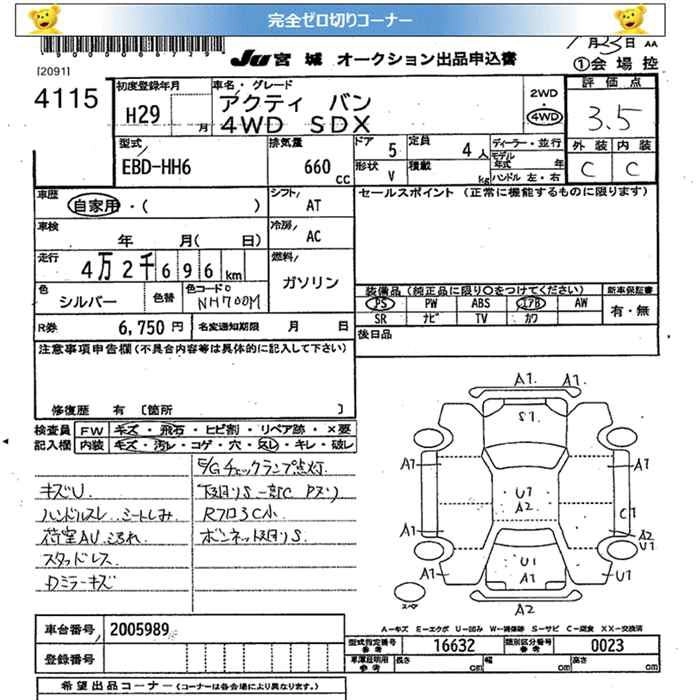 完全ゼロ切りコーナー
[2091]
JU 宮城 オークション出品申込書
月23日 AA
①会場控
4115
初度登録年月
H29 月
車名・グレード
アクティ バン
4WD SDX
2WD
4WD
評価点
3.5
外装 内装
C C
型式
EBD-HH6
排気量
660 cc
ドア 5
定員 4人
形状 V
積載 kg
ディーラー・並行
モデル年式 年
ハンドル 左・右
車歴
自家用・( )
シフト AT
セールスポイント (正常に機能するものに限ります)
車検
年 月( 日)
冷房 AC
走行
4万2千696km
燃料
ガソリン
色 シルバー
色替
色コードNo
NH700M
装備品 (純正品に限り○をつけてください)
PS PW ABS エアB AW
SR ナビ TV カワ
新車保証書
有・無
R券 6,750円
名変通知期限 月 日
後日品
注意事項申告欄 (不具合内容等は具体的に記入して下さい)
修復歴 有 [箇所 ]
検査員記入欄
FW キズ・飛石・ヒビ割・リペア跡・×要
内装 キズ・汚レ・コゲ・穴・スレ・キレ・破レ
E/Gチェックランプ点灯
キズU
下廻りS一部C Pヌリ
ハンドルスレ シートしみ
Rフロア3C小
荷室AU よごれ
ボンネット廻りS
スタッドレス
Dミラーキズ
A1 A1
S1
A1 A1
U1
A2
C1
A1
A2
U1
A1
U1
A1
U1
A2
スペア
A-キズ E-エクボ U-凹み W-補修跡 S-サビ C-腐食 XX-交換済
車台番号 2005989
登録番号
型式指定番号 参考 16632
類別区分番号 参考 0023
車庫証明用 参考 長さ cm 幅 cm 高さ cm
希望出品コーナー (コーナーは各会場により異なります。)